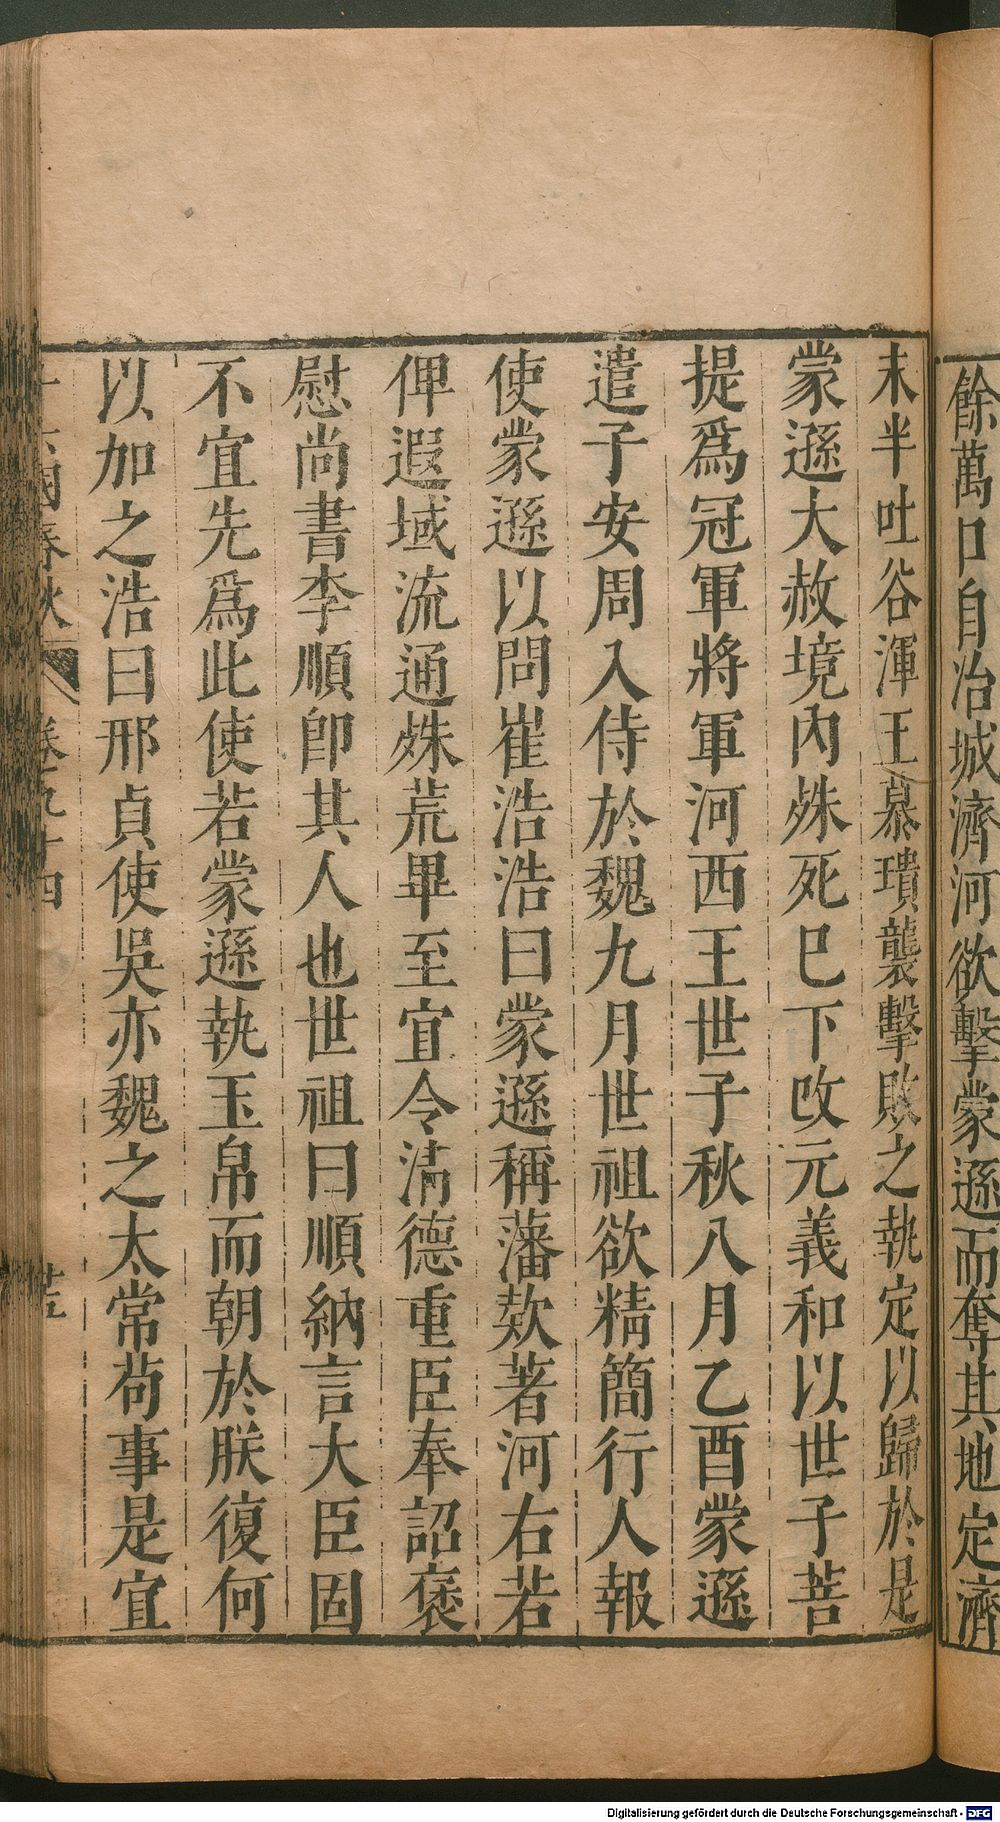 餘萬口自冶城濟河欲擊蒙遜而奪其地定濟
未半吐谷渾王慕璝襲擊敗之執定以歸於是
蒙遜大赦境內殊死巳下改元義和以世子菩
提爲冠軍將軍河西王世子秋八月乙酉蒙遜
遣子安周入侍於魏九月世祖欲精簡行人報
使蒙遜以問崔浩浩曰蒙遜稱藩欵著河右若
俾遐域流通殊荒畢至宜令淸德重臣奉詔褒
慰尚書李順卽其人也世祖曰順納言大臣固
不宜先爲此使若蒙遜執玉帛而朝於朕復何
以加之浩曰邢貞使吳亦魏之太常苟事是宜
十六國春秋 卷九十四
Digitalisierung gefördert durch die Deutsche Forschungsgemeinschaft - DFG